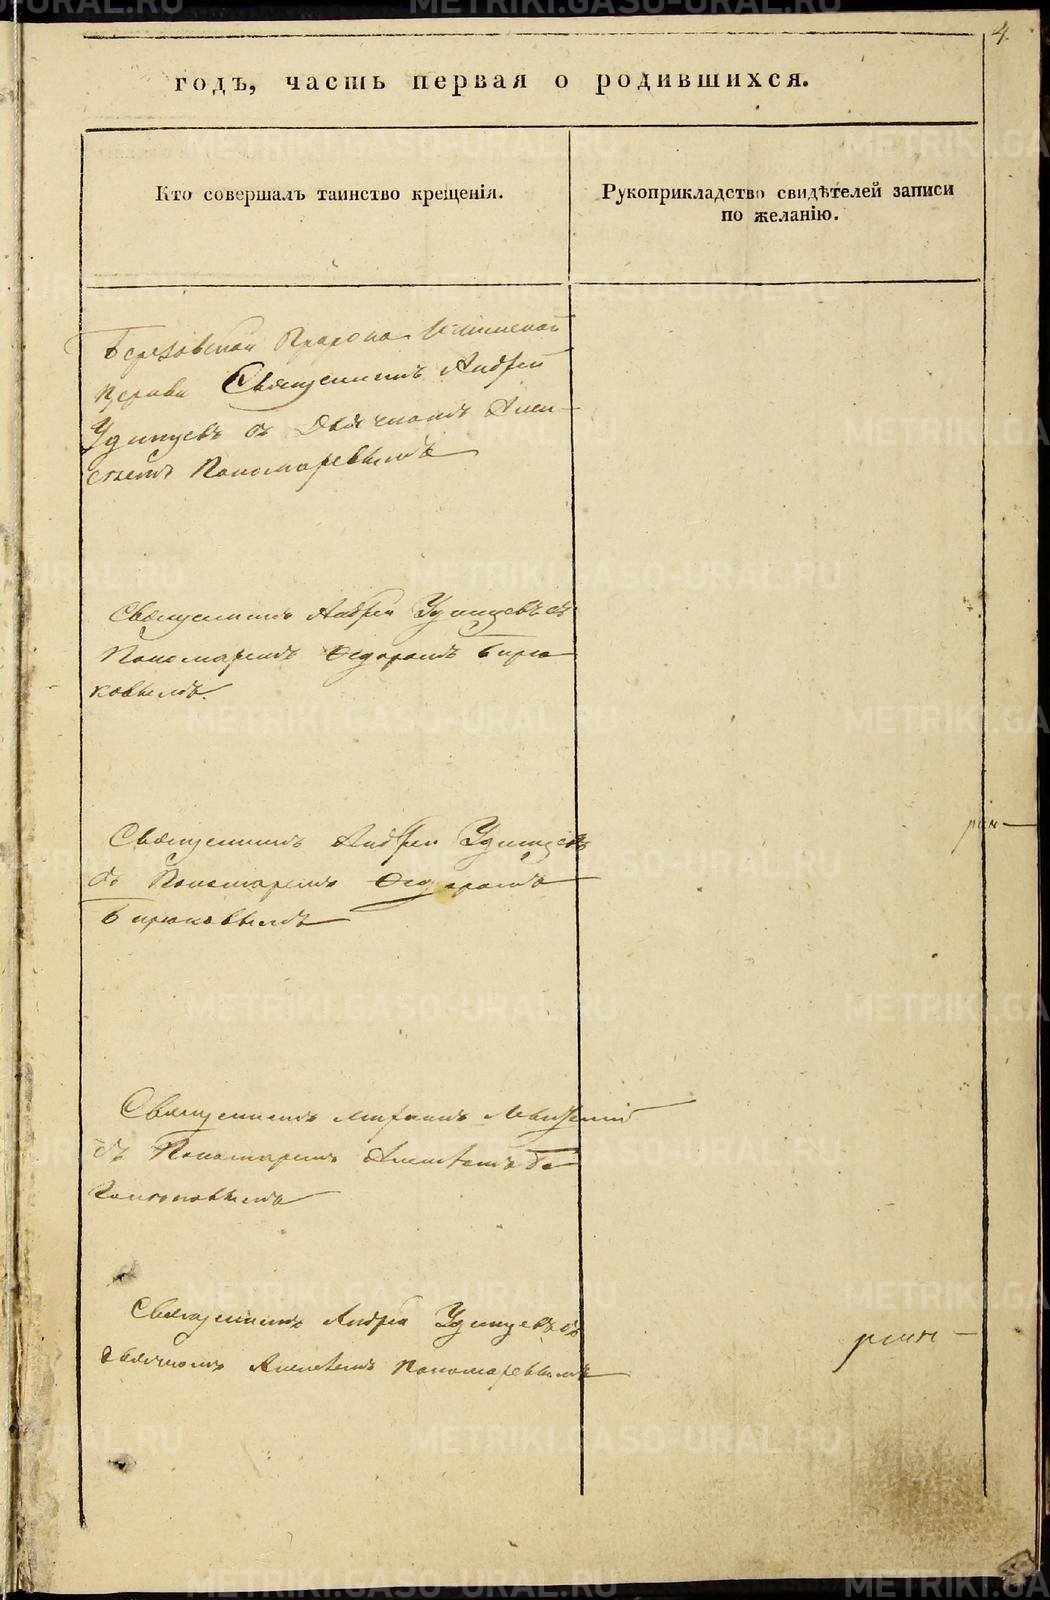 4.
годъ, часть первая о родившихся.
Кто совершалъ таинство крещенія.
Рукоприкладство свидѣтелей записи
по желанію.
Березовской Пророко Ильинской
Церкви Священникъ Андрей
Удинцевъ съ Дьячкомъ Алек-
сѣемъ Пономаревымъ
Священникъ Андрей Удинцевъ съ
Пономаремъ Ѳедоромъ Бирю
ковымъ.
Священникъ Андрей Удинцевъ
съ Пономаремъ Ѳедоромъ
Бирюковымъ
Священникъ
съ Пономаремъ Алексѣемъ
Священникъ Андрей Удинцевъ съ
дьячкомъ Алексѣемъ Пономаревымъ
METRIKI.GASO-URAL.RU